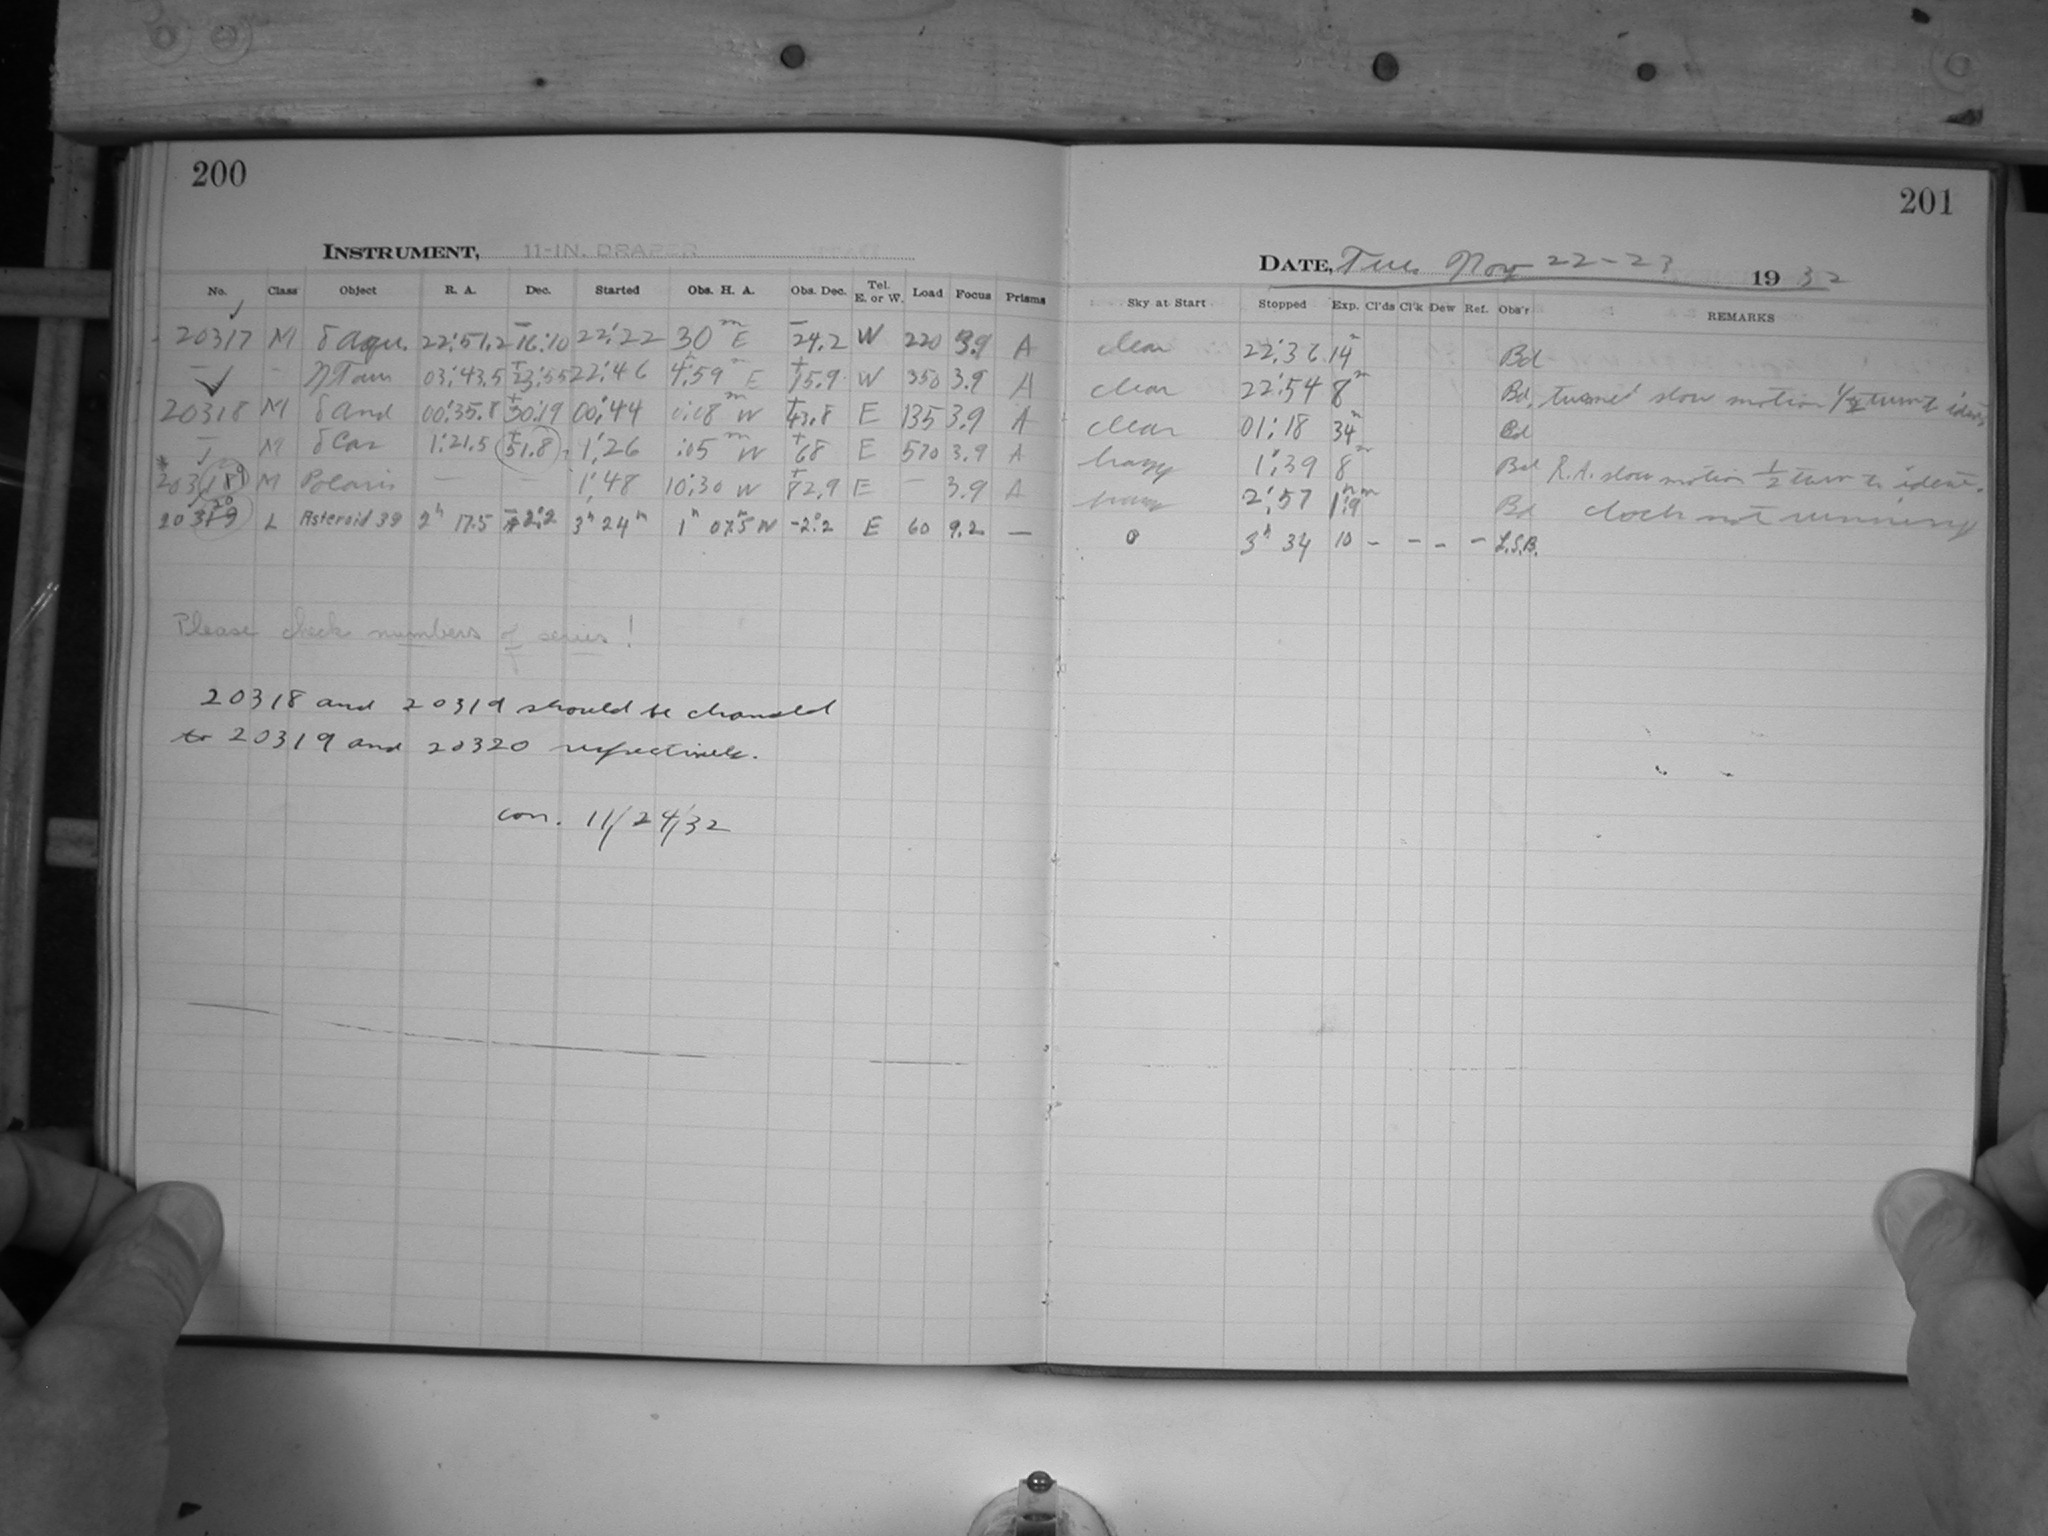 200
201
INSTRUMENT, 11-IN. DRAPER
DATE, Tues Nov 22-23 1932
No. Class Object R. A. Dec. Started Obs. H. A. Obs. Dec. Tel. E. or W. Load Focus Prisms Sky at Start Stopped Exp. Cl'ds Cl'k Dew Ref. Obs'r REMARKS
20317 M δ Aqu. 22:51.2 -16:10 22:22 30m E -24.2 W 220 3.9 A clear 22:36 14m Bd
— - η Tau 03:43.5 +23:55 22:46 4:59m E +15.9 W 350 3.9 A clear 22:54 8m Bd, turned slow motion 1/2 turn to ident.
20318 M δ And 00:35.8 +30:19 00:44 0:08m W +43.8 E 135 3.9 A clear 01:18 34m Bd
— M δ Cas 1:21.5 +51.8 1:26 :05m W +68 E 570 3.9 A hazy 1:39 8m Bd R.A. slow motion 1/2 turn to ident.
* 20318 9 M Polaris — — 1:48 10:30 W +82.9 E — 3.9 A hazy 2:57 1h 9m Bd clock not running
20319 20 L Asteroid 39 2h 17.5 -2:2 3h 24m 1h 07.5m W -2:2 E 60 9.2 — 0 3h 34 10 - - - - L.S.B.
Please check numbers of series!
20318 and 20319 should be changed
to 20319 and 20320 respectively.
corr. 11/24/32